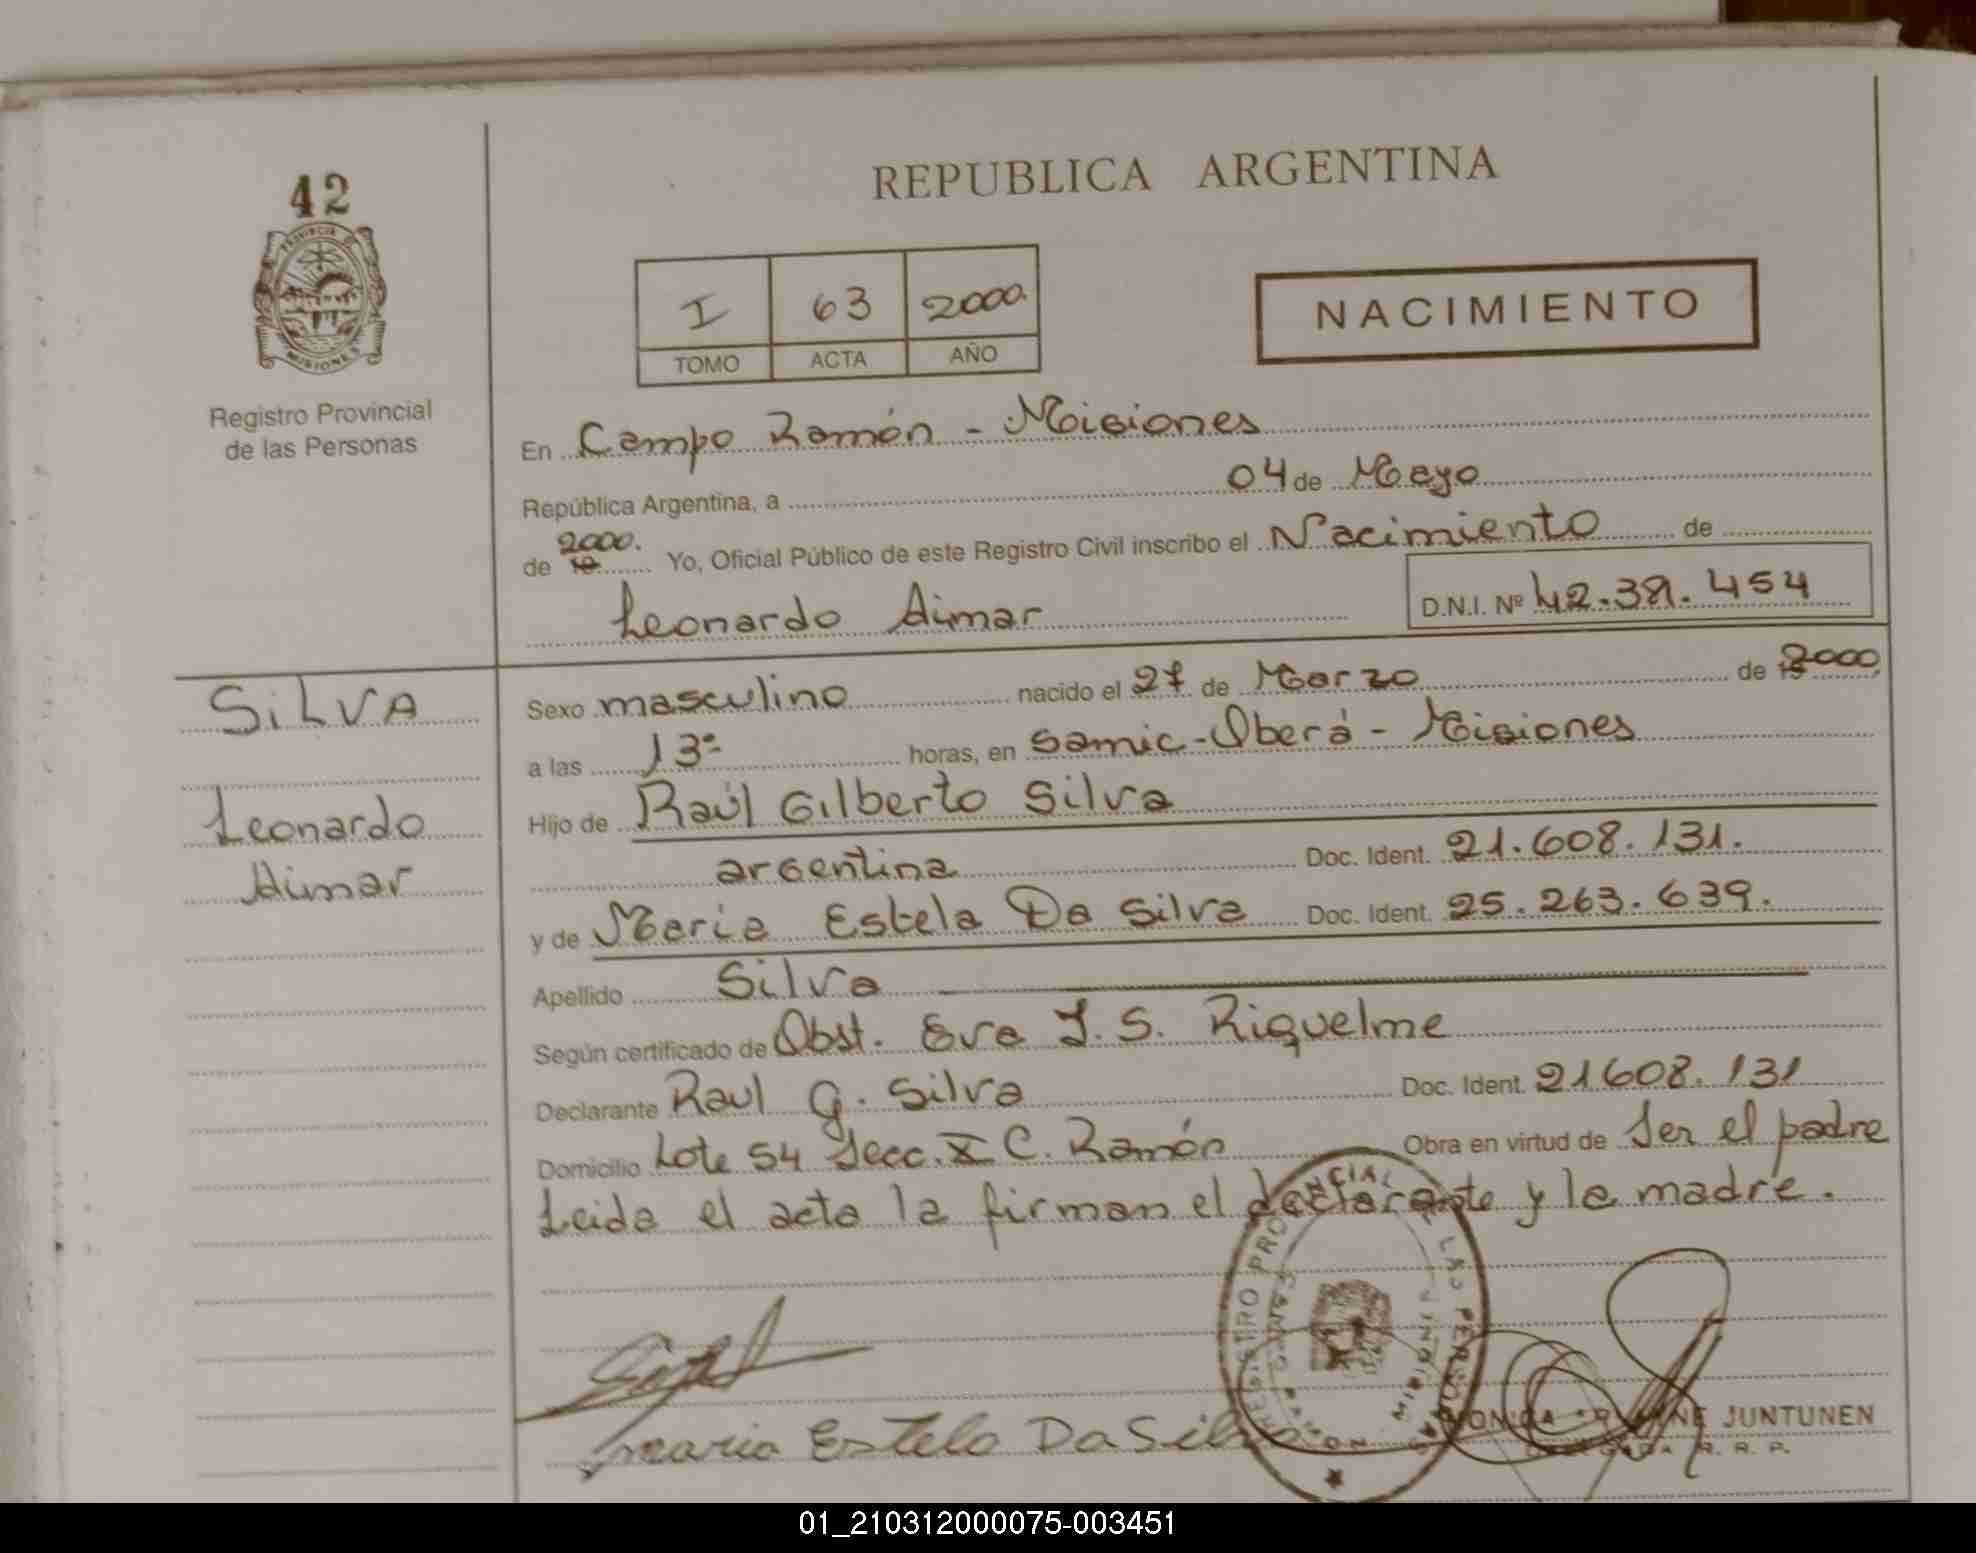 42
PROVINCIA DE
MISIONES
Registro Provincial
de las Personas
REPUBLICA ARGENTINA
I 63 2000.
TOMO ACTA AÑO
NACIMIENTO
En Campo Ramón - Misiones
República Argentina, a 04 de Mayo
de 19 2000. Yo, Oficial Público de este Registro Civil inscribo el Nacimiento de
Leonardo Aimar D.N.I. Nº 42.
454
SILVA
Leonardo
Aimar
Sexo masculino nacido el 27 de Marzo de 2000
a las 13- horas, en Samic-Oberá - Misiones
Hijo de Raúl Gilberto Silva
argentina Doc. Ident. 21.608.131.
y de Maria Estela Da Silva Doc. Ident. 25.263.639.
Apellido Silva
Según certificado de Obst. Eva S. Riquelme
Declarante Raul G. Silva Doc. Ident. 21608.131
Domicilio Lote 54 Secc. X C. Ramón Obra en virtud de Ser el padre
Leida el acta la firman el declarante y la madre.
REGISTRO PROVINCIAL DE LAS PERSONAS
CAMPO RAMON
MISIONES
Maria Estela Da Silva
JUNTUNEN
R. R. P.
01_210312000075-003451